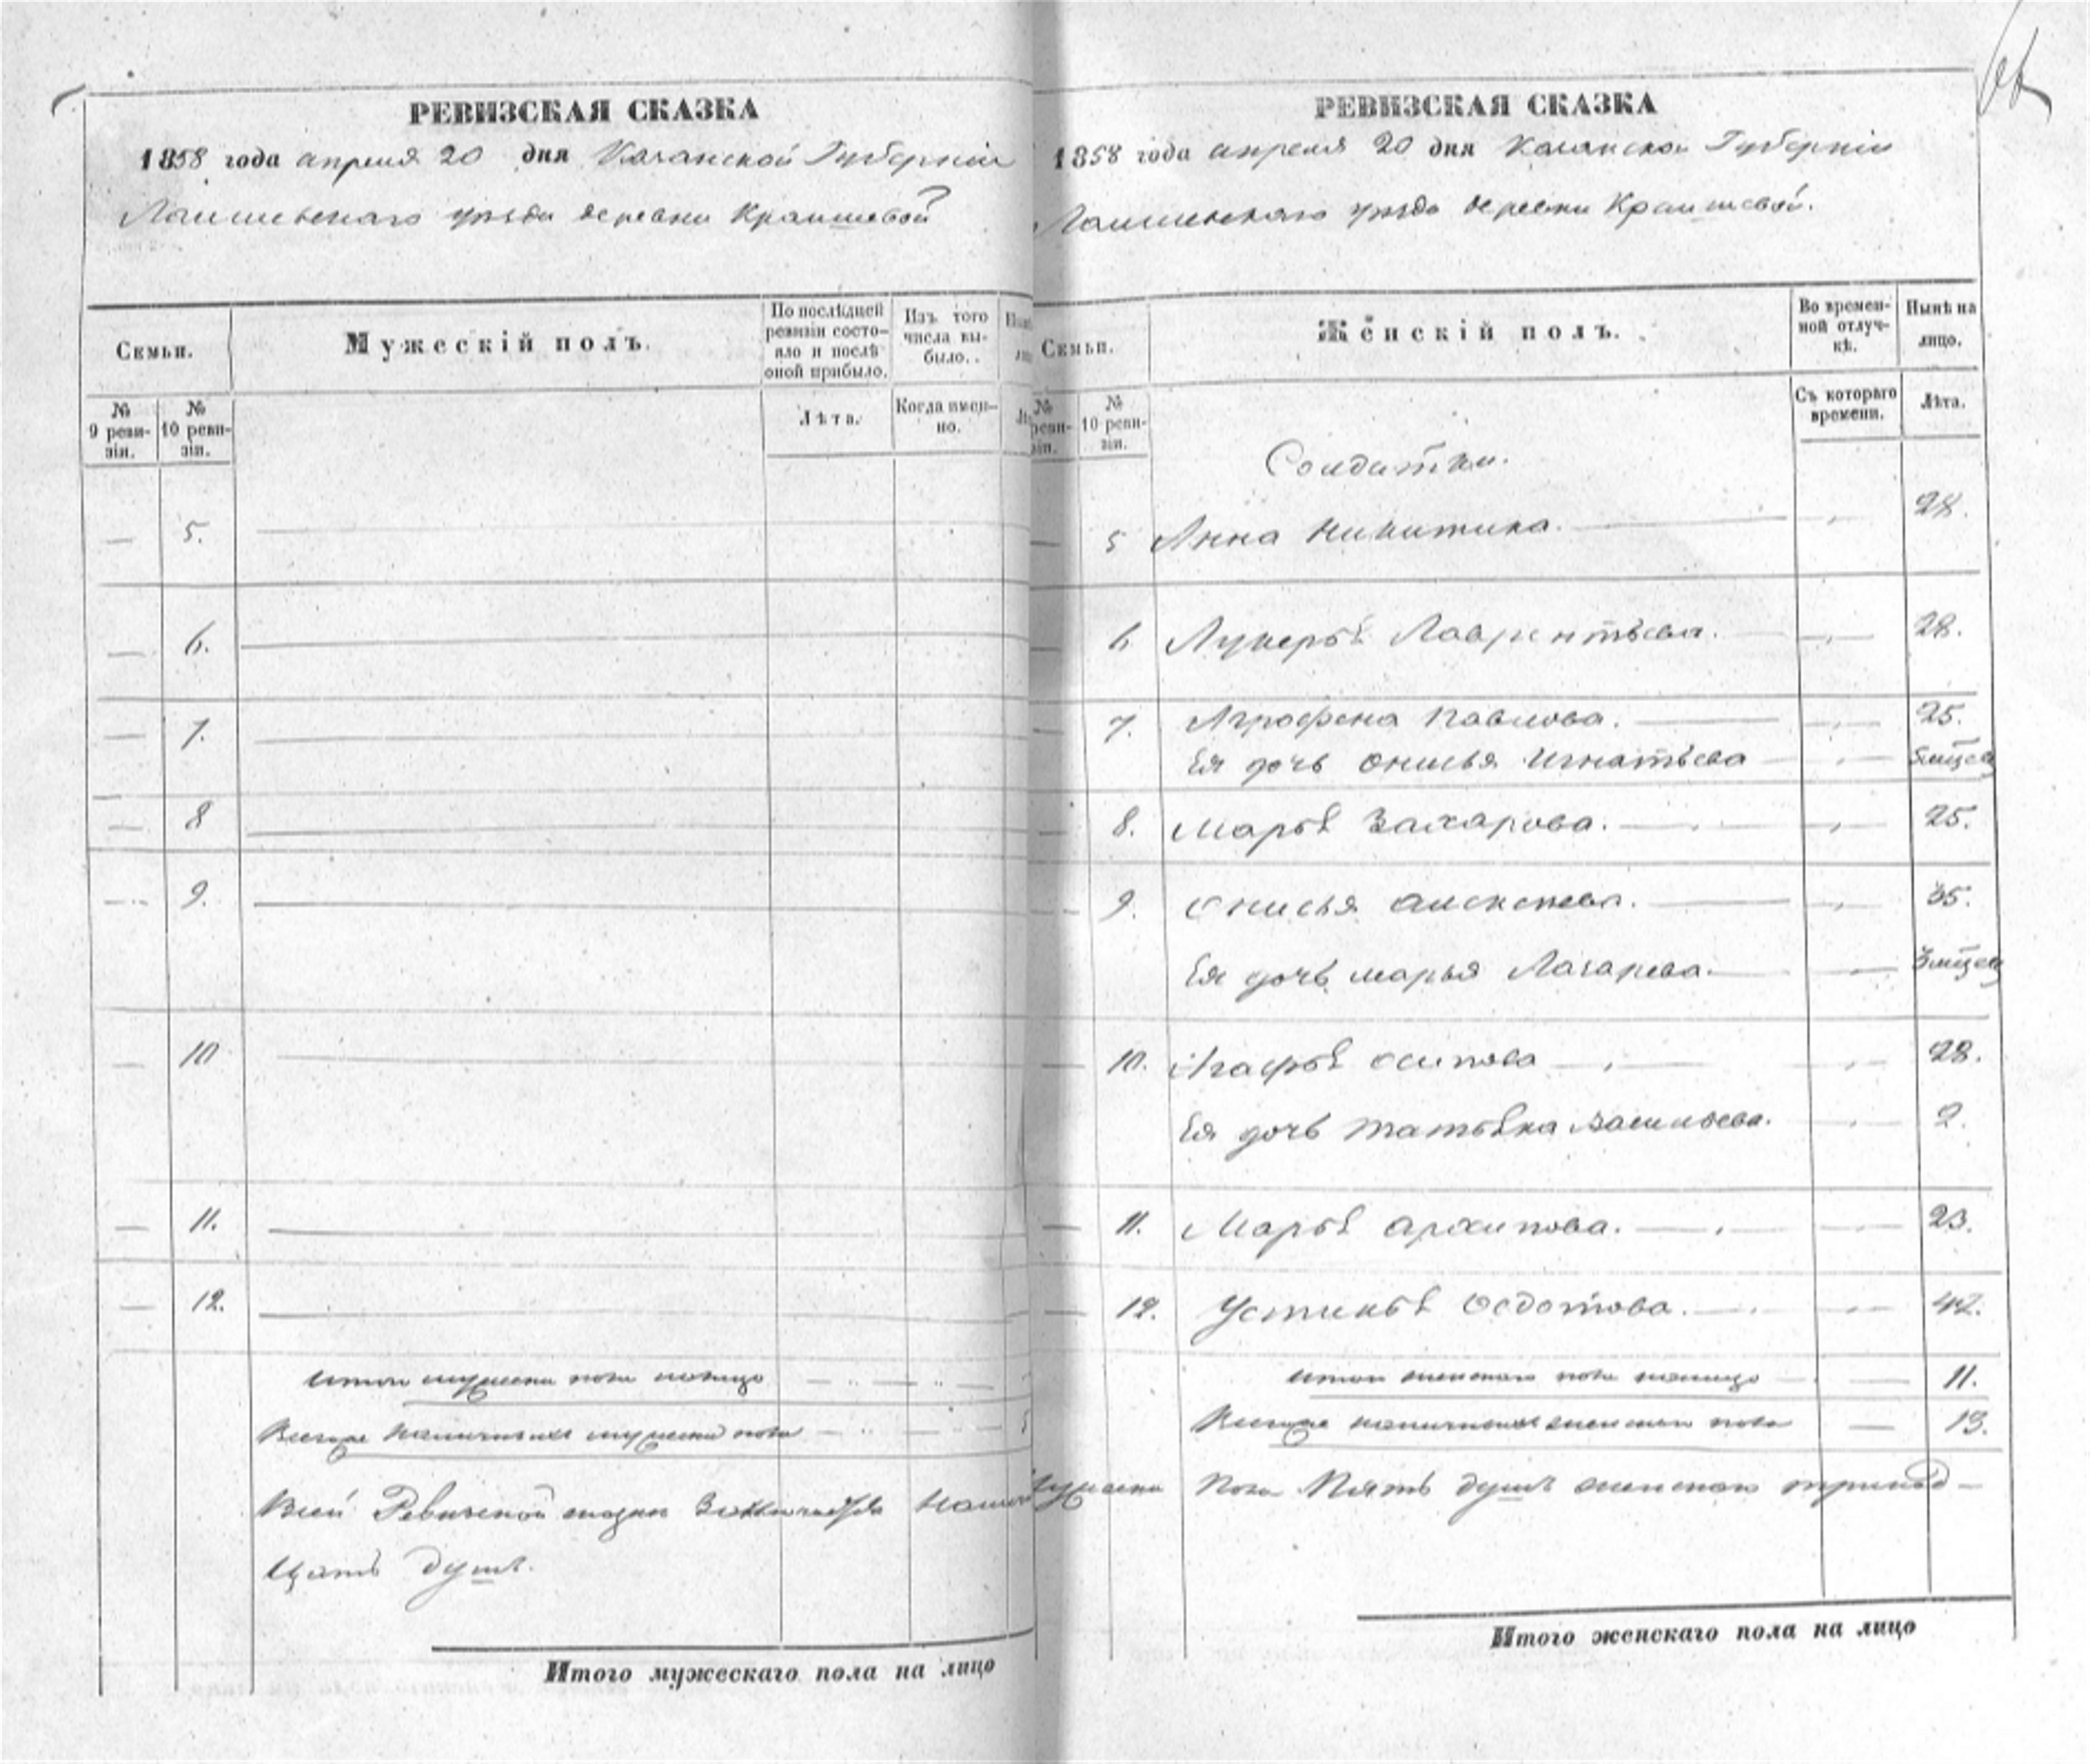 РЕВИЗСКАЯ СКАЗКА
1858 года апреля 20 дня Казанской Губерніи
Лаишевскаго уѣзда деревни Краишевой
Семьи.
Мужескій полъ.
По послѣдней ревизіи состояло и послѣ оной прибыло.
Изъ того числа выбыло.
№ 9 ревизіи.
№ 10 ревизіи.
Лѣта.
Когда именно.
— 5.
— 6.
— 7.
— 8
— 9.
— 10
— 11.
— 12.
Итого мужеска пола налицо
Всего наличныхъ мужеска пола
Всей Ревизской сказки Заключается налицо мужеска пола Пять душъ женскаго тринад-
цать душъ.
Итого мужескаго пола на лицо
РЕВИЗСКАЯ СКАЗКА
1858 года апреля 20 дня Казанской Губерніи
Лаишевскаго уѣзда деревни Краишевой.
Семьи.
Женскій полъ.
Во временной отлучкѣ.
Нынѣ на лицо.
№ ревизіи.
№ 10 ревизіи.
Съ котораго времени.
Лѣта.
Солдатки.
5 Анна Никитина. 28.
6 Лукерья Лаврентьева. 28.
7. Аграфена Павлова. 25.
Ея дочь Онисья Игнатьева 5 мѣсяц
8. Марья Захарова. 25.
9. Онисья Алексеева. 35.
Ея дочь Марья Лазарева. 3 мѣсяц
10. Агафья Осипова 28.
Ея дочь Татьяна Васильева. 2.
11. Марья Архипова. 23.
12. Устинья Федотова. 42.
Итого женскаго пола налицо 11.
Всего наличныхъ женскаго пола 13.
Итого женскаго пола на лицо